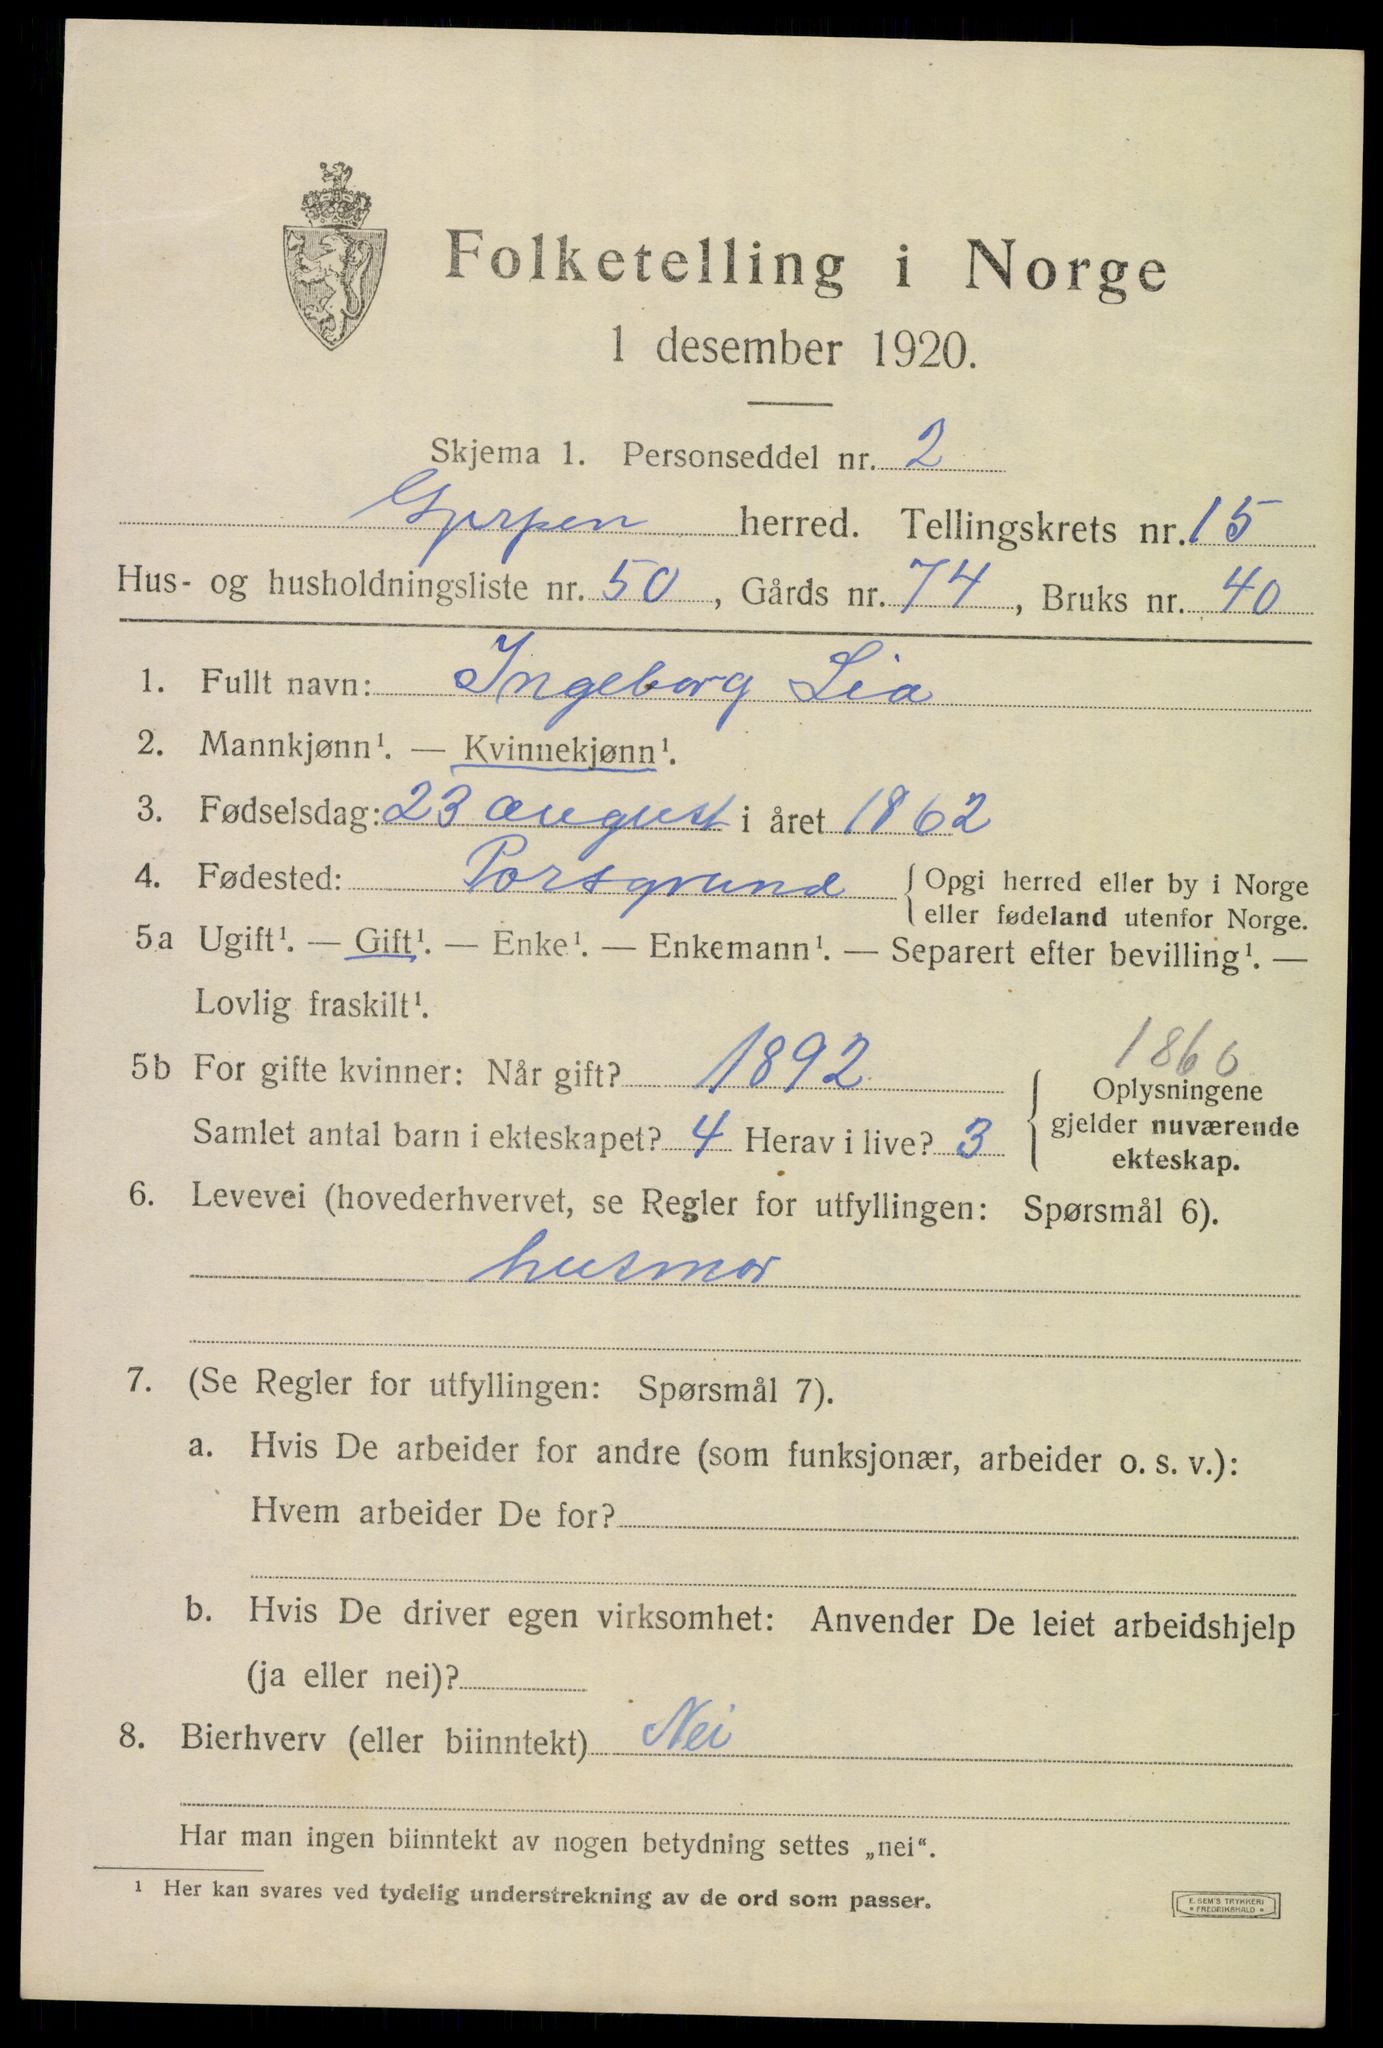 Folketelling i Norge
1 desember 1920.
Skjema 1. Personseddel nr. 2
Gjerpen herred. Tellingskrets nr. 15
Hus- og husholdningsliste nr. 50, Gårds nr. 74, Bruks nr. 40
1. Fullt navn: Ingeborg Lia
2. Mannkjønn¹. — Kvinnekjønn¹.
3. Fødselsdag: 23 august i året 1862
4. Fødested: Porsgrund { Opgi herred eller by i Norge
eller fødeland utenfor Norge.
5a Ugift¹. — Gift¹. — Enke¹. — Enkemann¹. — Separert efter bevilling¹. —
Lovlig fraskilt¹.
1860
5b For gifte kvinner: Når gift? 1892
Samlet antal barn i ekteskapet? 4 Herav i live? 3
{ Oplysningene
gjelder nuværende
ekteskap.
6. Levevei (hovederhvervet, se Regler for utfyllingen: Spørsmål 6).
husmor
7. (Se Regler for utfyllingen: Spørsmål 7).
a. Hvis De arbeider for andre (som funksjonær, arbeider o. s. v.):
Hvem arbeider De for?
b. Hvis De driver egen virksomhet: Anvender De leiet arbeidshjelp
(ja eller nei)?
8. Bierhverv (eller biinntekt) Nei
Har man ingen biinntekt av nogen betydning settes „nei“.
¹ Her kan svares ved tydelig understrekning av de ord som passer.
E. SEM'S TRYKKERI
FREDRIKSHALD